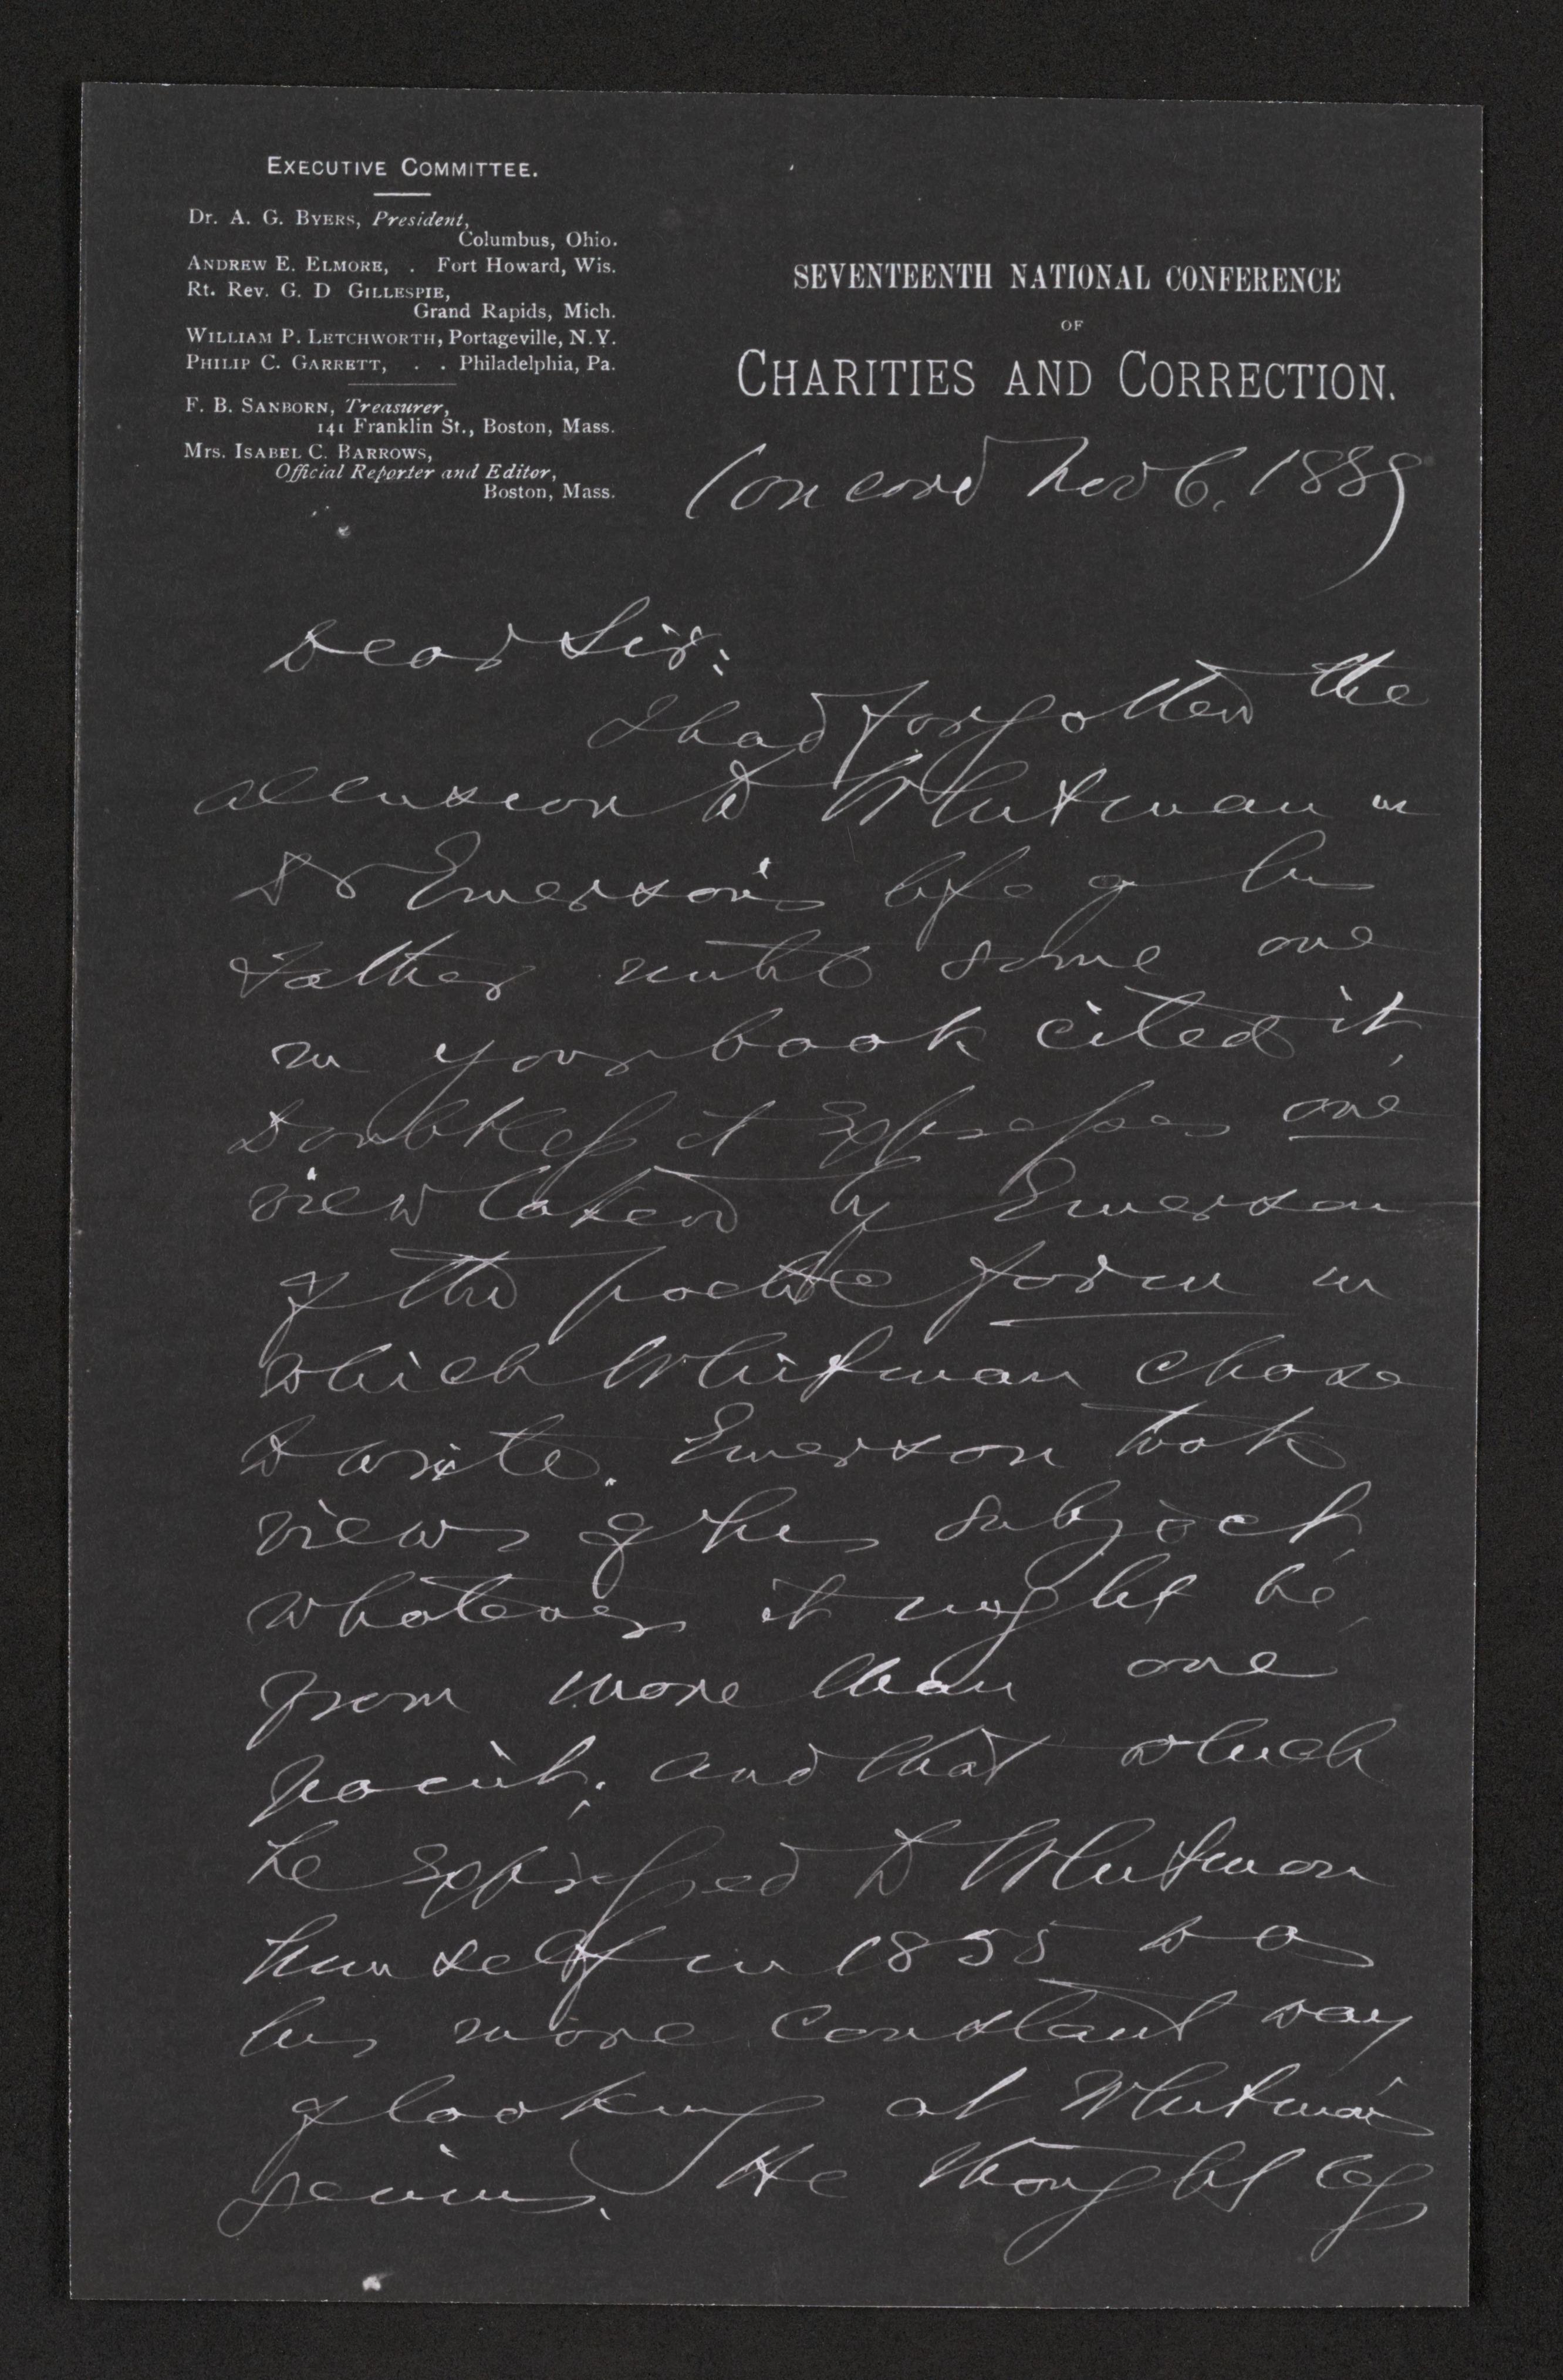 EXECUTIVE COMMITTEE.
Dr. A. G. BYERS, President,
Columbus, Ohio.
ANDREW E. ELMORE, . Fort Howard, Wis.
Rt. Rev. G. D GILLESPIE,
Grand Rapids, Mich.
WILLIAM P. LETCHWORTH, Portageville, N.Y.
PHILIP C. GARRETT, . . Philadelphia, Pa.
F. B. SANBORN, Treasurer,
141 Franklin St., Boston, Mass.
Mrs. ISABEL C. BARROWS,
Official Reporter and Editor,
Boston, Mass.
SEVENTEENTH NATIONAL CONFERENCE
OF
CHARITIES AND CORRECTION.
Concord Nov 6, 1889
Dear Sir:
I had forgotten the
allusion to Whitman in
Dr Emerson's life of his
father until some one
in your book cited it,
Doubtless it expresses one
view taken by Emerson
of the poetic form in
which Whitman chose
to write. Emerson took
views of his subject,
whatever it might be,
from more than one
point; and that which
he expressed to Whitman
himself in 1855 was
his more constant way
of looking at Whitman's
genius. He thought